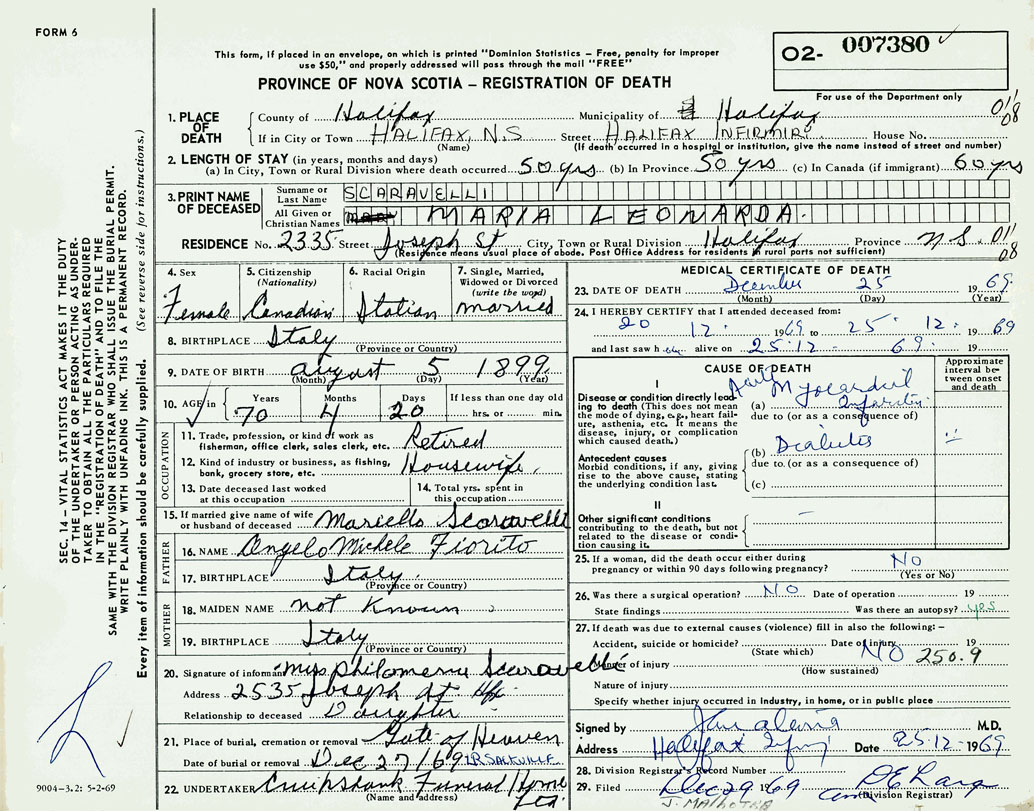 FORM 6
This form, if placed in an envelope, on which is printed "Dominion Statistics – Free, penalty for improper
use $50," and properly addressed will pass through the mail "FREE"
O2- 007380
PROVINCE OF NOVA SCOTIA – REGISTRATION OF DEATH
For use of the Department only
1. PLACE OF DEATH
County of Halifax Municipality of Halifax
If in City or Town HALIFAX, N.S Street HALIFAX INFIRMIR House No.
(Name) (If death occurred in a hospital or institution, give the name instead of street and number)
2. LENGTH OF STAY (in years, months and days)
(a) In City, Town or Rural Division where death occurred 50 yrs (b) In Province 50 yrs (c) In Canada (if immigrant) 60 yrs
3. PRINT NAME OF DECEASED
Surname or Last Name SCARAVELLI
All Given or Christian Names MARIA LEONARDA.
RESIDENCE No. 2335 Street Joseph St City, Town or Rural Division Halifax Province N.S. 011
(Residence means usual place of abode. Post Office Address for residents in rural parts not sufficient) 08
4. Sex Female
5. Citizenship (Nationality) Canadian
6. Racial Origin Italian
7. Single, Married, Widowed or Divorced (write the word) married
8. BIRTHPLACE Italy
(Province or Country)
9. DATE OF BIRTH August 5 1899
(Month) (Day) (Year)
10. AGE in Years 70 Months 4 Days 20 If less than one day old hrs. or min.
OCCUPATION
11. Trade, profession, or kind of work as fisherman, office clerk, sales clerk, etc. Retired
12. Kind of industry or business, as fishing, bank, grocery store, etc. Housewife.
13. Date deceased last worked at this occupation
14. Total yrs. spent in this occupation
15. If married give name of wife or husband of deceased Mariello Scaravelli
FATHER
16. NAME Angelo Michele Fiorito
17. BIRTHPLACE Italy
(Province or Country)
MOTHER
18. MAIDEN NAME not Known
19. BIRTHPLACE Italy
(Province or Country)
20. Signature of informant Miss Philomena Scaravelli
Address 2535 Joseph St Hfx
Relationship to deceased Daughter
21. Place of burial, cremation or removal Gate of Heaven
Date of burial or removal Dec 27/69 LR. SACKVILLE
22. UNDERTAKER Cruikshank Funeral Home Ltd.
(Name and address)
MEDICAL CERTIFICATE OF DEATH
23. DATE OF DEATH December 25 1969.
(Month) (Day) (Year)
24. I HEREBY CERTIFY that I attended deceased from:
20 12. 1969 to 25. 12. 1969
and last saw h er alive on 25.12 69.
CAUSE OF DEATH
Approximate interval between onset and death
I
Disease or condition directly leading to death (This does not mean the mode of dying, e.g., heart failure, asthenia, etc. It means the disease, injury, or complication which caused death.)
(a) Myocardial Infarction
due to (or as a consequence of)
(b) Diabetes
due to. (or as a consequence of)
(c)
Antecedent causes
Morbid conditions, if any, giving rise to the above cause, stating the underlying condition last.
II
Other significant conditions contributing to the death, but not related to the disease or condition causing it.
25. If a woman, did the death occur either during pregnancy or within 90 days following pregnancy? No
(Yes or No)
26. Was there a surgical operation? NO Date of operation 19
State findings Was there an autopsy? yes
27. If death was due to external causes (violence) fill in also the following: –
Accident, suicide or homicide? Date of injury 19
(State which) NO 250.9
Manner of injury
(How sustained)
Nature of injury
Specify whether injury occurred in Industry, in home, or in public place
Signed by M.D.
Address Halifax Infmy Date 25-12-1969
28. Division Registrar's Record Number
29. Filed Dec 29 1969
(Division Registrar)
SEC. 14 – VITAL STATISTICS ACT MAKES IT THE DUTY
OF THE UNDERTAKER OR PERSON ACTING AS UNDERTAKER TO OBTAIN ALL THE PARTICULARS REQUIRED
IN THE "REGISTRATION OF DEATH" AND TO FILE THE
SAME WITH THE DIVISION REGISTRAR WHO SHALL ISSUE THE BURIAL PERMIT.
WRITE PLAINLY WITH UNFADING INK. THIS IS A PERMANENT RECORD.
Every item of information should be carefully supplied. (See reverse side for instructions.)
9004–3.2: 5-2-69